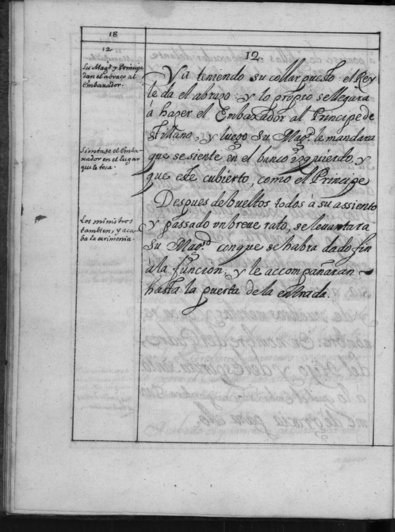 18
12.
12.
Su Magd. y Principe
dan el abrazo al
Embaxador.
Ya teniendo su collar puesto el Rey
le da el abrazo: y lo propio se llegara
á hazer el Embaxador al Principe de
; y luego su Magd. le mandara
que se siente en el banco izquierdo, y
que esté cubierto, como el Principe
Sientase el Emba-
xador en el lugar
que le toca.
Despues de bueltos todos á su assiento
y passado vn breve rato, se levantara
su Magd. con que se habra dado fin
á la funcion, y le accompañaran
hasta la puerta de la entrada.
Los ministros
tambien, y aca-
ba la cerimonia.